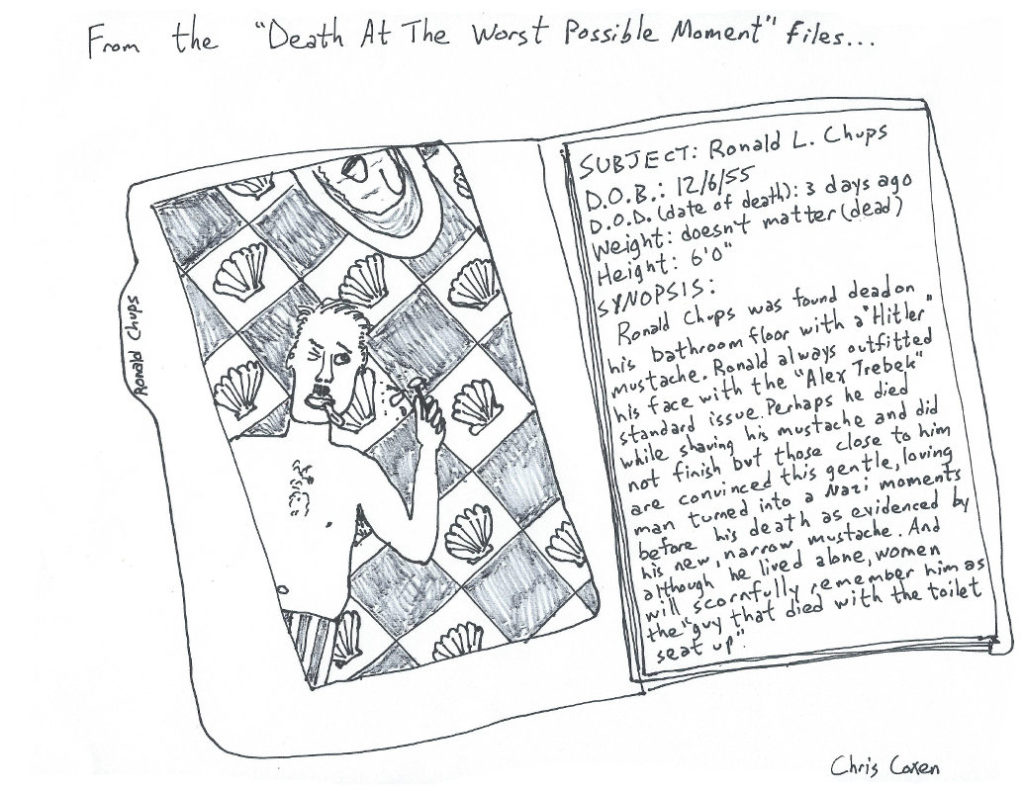 From the "Death At The Worst Possible Moment" files...
Ronald Chups
SUBJECT: Ronald L. Chups
D.O.B.: 12/6/55
D.O.D. (date of death): 3 days ago
Weight: doesn't matter (dead)
Height: 6'0"
SYNOPSIS:
Ronald Chups was found dead on
his bathroom floor with a "Hitler"
mustache. Ronald always outfitted
his face with the "Alex Trebek"
standard issue. Perhaps he died
while shaving his mustache and did
not finish but those close to him
are convinced this gentle, loving
man turned into a Nazi moments
before his death as evidenced by
his new, narrow mustache. And
although he lived alone, women
will scornfully remember him as
the "guy that died with the toilet
seat up".
Chris Coxen